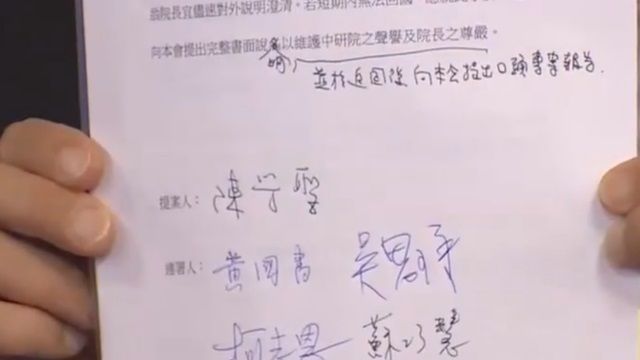 翁院長宜儘速對外說明澄清。若短期內無法回國
向本會提出完整書面說明,以維護中研院之聲譽及院長之尊嚴。
並於返國後向本會提出口頭專案報告.
提案人: 陳學聖
連署人: 黃國書 吳思瑤
柯志恩 蘇巧慧